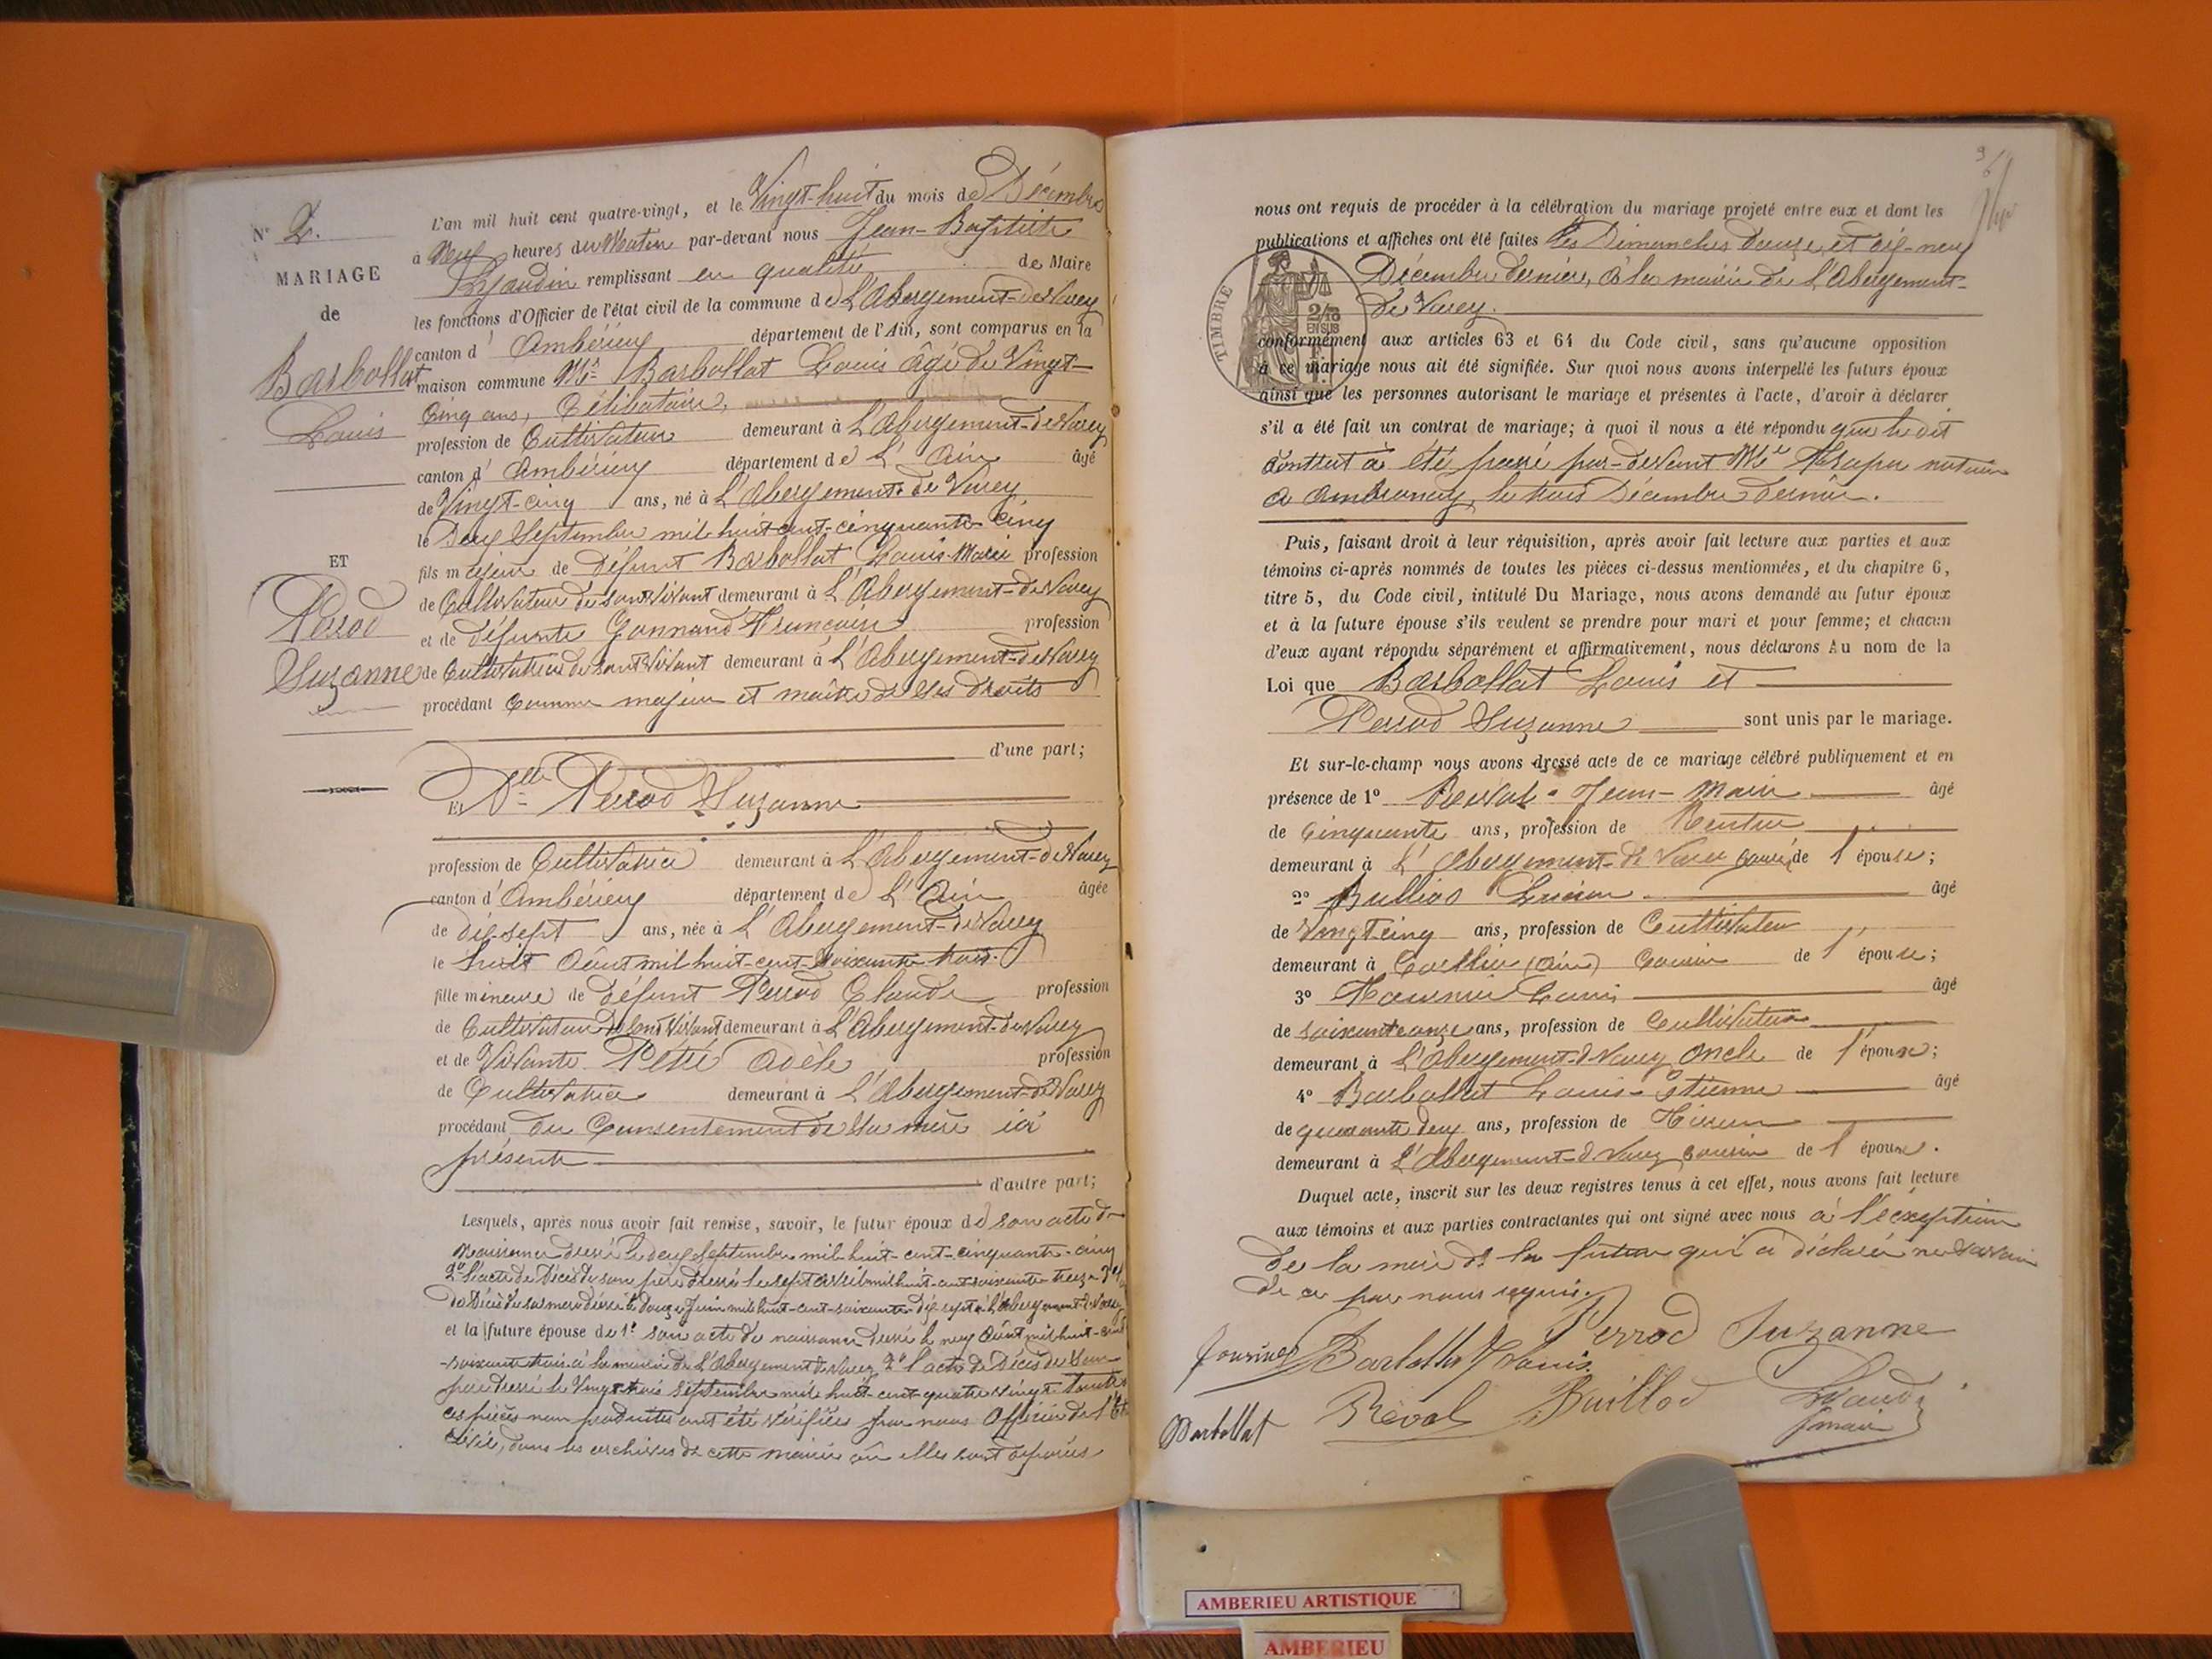 N° 2.
MARIAGE
de
Barbollat
Louis
ET
Perrod
Suzanne
L'an mil huit cent quatre-vingt, et le Vingt-huit du mois de Décembre
à Neuf heures du Matin par-devant nous Jean-Baptiste
remplissant en qualité de Maire
les fonctions d'Officier de l'état civil de la commune de L'Abergement-de Varey
canton d'Ambérieu département de l'Ain, sont comparus en la
maison commune Mr Barbollat Louis âgé de Vingt-
Cinq ans, Célibataire,
profession de Cultivateur demeurant à L'Abergement-de Varey
canton d'Ambérieu département de L'Ain âgé
de Vingt-cinq ans, né à L'Abergement-de Varey
le Deux Septembre mil huit cent-cinquante cinq
fils majeur de Défunt Barbollat Louis-Marie profession
de Cultivateur de son vivant demeurant à L'Abergement-de Varey
et de défunte Gonnand Françoise profession
de Cultivatrice de son vivant demeurant à L'Abergement-de Varey
procédant comme majeur et maître de ses droits
d'une part;
Et Delle Perrod Suzanne
profession de Cultivatrice demeurant à L'Abergement-de Varey
canton d'Ambérieu département de L'Ain âgée
de dix-sept ans, née à L'Abergement-de Varey
le huit Août mil huit-cent-soixante trois
fille mineure de défunt Perrod Claude profession
de Cultivateur de son vivant demeurant à L'Abergement-de Varey
et de vivante Adèle profession
de Cultivatrice demeurant à L'Abergement-de Varey
procédant du Consentement de sa mère ici
présente
d'autre part;
Lesquels, après nous avoir fait remise, savoir, le futur époux de son acte de
Naissance dressé le deux Septembre mil-huit-cent-cinquante-cinq
2° L'acte de Décès de son père dressé le sept mil huit-cent-soixante-treize 3°
de Décès de sa mère dressé le douze Juin mil huit-cent-soixante dix-sept à L'Abergement-de Varey
et la future épouse de 1° son acte de naissance dressé le neuf Août mil huit-cent
-soixante trois à la mairie de L'Abergement de Varey 2° l'acte de Décès de son
père dressé le Vingt-trois Septembre mil huit-cent-quatre vingt. Toutes
ces pièces non produites ont été vérifiées par nous Officier de l'Etat
Civil, dans les archives de cette mairie où elles sont déposées
nous ont requis de procéder à la célébration du mariage projeté entre eux et dont les
publications et affiches ont été faites les Dimanches douze et dix-neuf
Décembre dernier, à la mairie de L'Abergement-
de Varey.
TIMBRE
2/10
EN SUS
conformément aux articles 63 et 64 du Code civil, sans qu'aucune opposition
à ce mariage nous ait été signifiée. Sur quoi nous avons interpellé les futurs époux
ainsi que les personnes autorisant le mariage et présentes à l'acte, d'avoir à déclarer
s'il a été fait un contrat de mariage; à quoi il nous a été répondu que le dit
contrat a été passé par-devant Me notaire
à Ambronay, le trois Décembre dernier.
Puis, faisant droit à leur réquisition, après avoir fait lecture aux parties et aux
témoins ci-après nommés de toutes les pièces ci-dessus mentionnées, et du chapitre 6,
titre 5, du Code civil, intitulé Du Mariage, nous avons demandé au futur époux
et à la future épouse s'ils veulent se prendre pour mari et pour femme; et chacun
d'eux ayant répondu séparément et affirmativement, nous déclarons Au nom de la
Loi que Barbollat Louis et
Perrod Suzanne sont unis par le mariage.
Et sur-le-champ nous avons dressé acte de ce mariage célébré publiquement et en
présence de 1° Jean-Marie âgé
de Cinquante ans, profession de Rentier
demeurant à L'Abergement-de Varey de l'épouse;
2° âgé
de Vingt cinq ans, profession de Cultivateur
demeurant à (Ain) Cousin de l'épouse;
3° Louis âgé
de soixante onze ans, profession de Cultivateur
demeurant à L'Abergement-de Varey Oncle de l'épouse;
4° Barbollat Louis-Etienne âgé
de quarante deux ans, profession de
demeurant à L'Abergement-de Varey cousin de l'époux.
Duquel acte, inscrit sur les deux registres tenus à cet effet, nous avons fait lecture
aux témoins et aux parties contractantes qui ont signé avec nous à l'exception
de la mère de la future qui a déclaré ne savoir
de ce par nous requis.
Perrod Suzanne
Barbollat Louis
Barbollat Réval Buillod
maire
AMBERIEU ARTISTIQUE
AMBERIEU